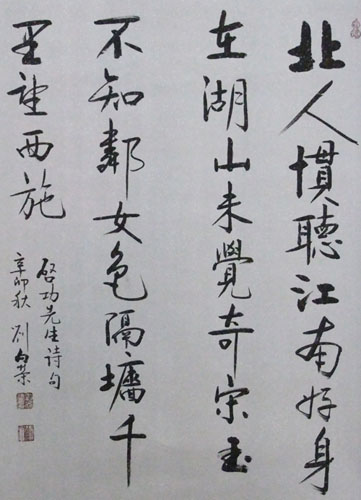 北人慣聽江南好身
在湖山未覺奇宋玉
不知鄰女色隔墻千
里望西施
啓功先生诗句
辛卯秋 刘白荣